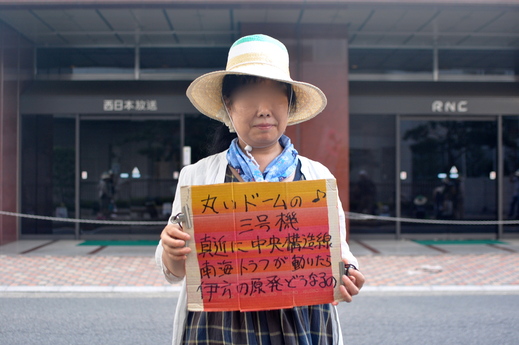 西日本放送
RNC
丸いドームの♪
三号機
真近に中央構造線
南海トラフが動いたら
伊方の原発どうなるの